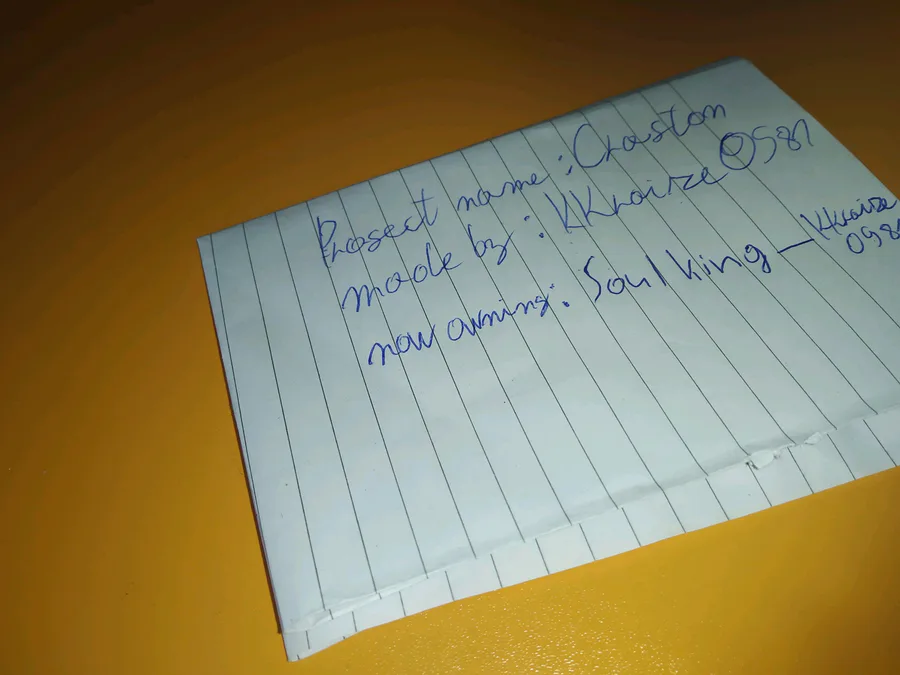 Project name : Craston
made by : KKraize0987
now owning : Soul king — KKraize
098